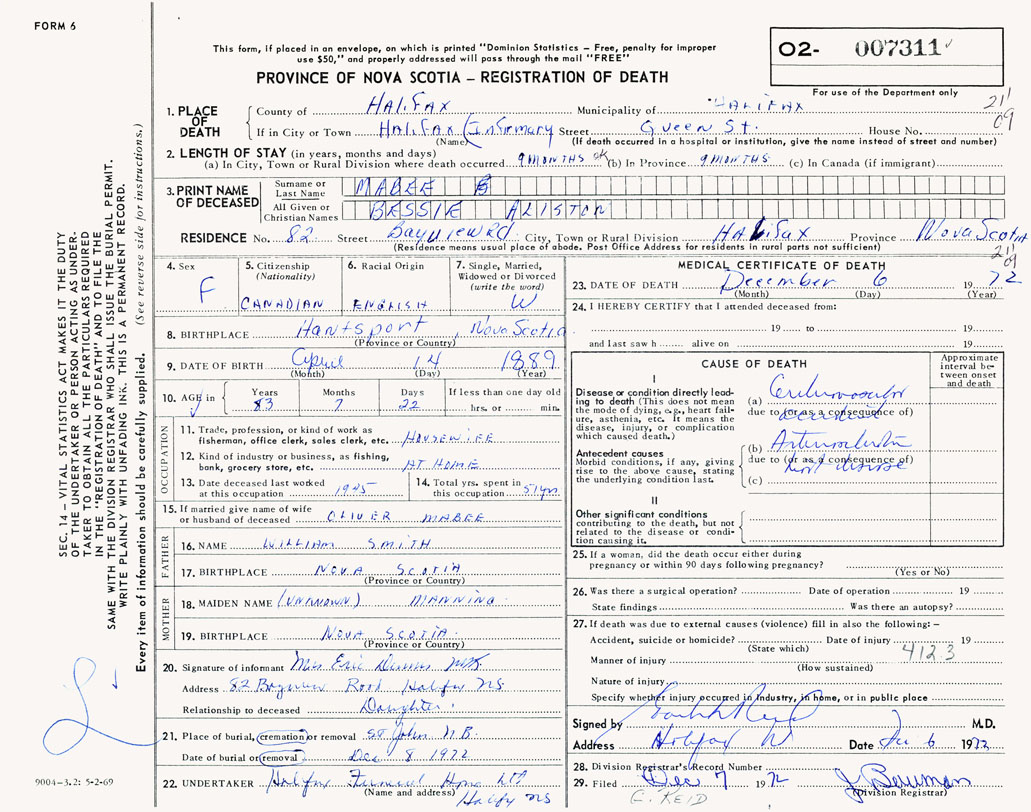 FORM 6
This form, if placed in an envelope, on which is printed "Dominion Statistics – Free, penalty for improper
use $50," and properly addressed will pass through the mail "FREE"
PROVINCE OF NOVA SCOTIA – REGISTRATION OF DEATH
O2- 007311
For use of the Department only
211
09
1. PLACE OF DEATH
County of HALIFAX Municipality of HALIFAX
If in City or Town HALIFAX (Infirmary Street Queen St. House No.
(Name) (If death occurred in a hospital or institution, give the name instead of street and number)
2. LENGTH OF STAY (in years, months and days)
(a) In City, Town or Rural Division where death occurred 9 MONTHS (b) In Province 9 MONTHS (c) In Canada (if immigrant)
3. PRINT NAME OF DECEASED
Surname or Last Name MABEE
All Given or Christian Names BESSIE ALISTON
RESIDENCE No. 82 Street Bayview Rd City, Town or Rural Division Halifax Province Nova Scotia
(Residence means usual place of abode. Post Office Address for residents in rural parts not sufficient)
211
09
4. Sex F
5. Citizenship (Nationality) CANADIAN
6. Racial Origin ENGLISH
7. Single, Married, Widowed or Divorced (write the word) W
8. BIRTHPLACE Hantsport, Nova Scotia
(Province or Country)
9. DATE OF BIRTH April 14 1889
(Month) (Day) (Year)
10. AGE in Years 83 Months 7 Days 22 If less than one day old hrs. or min.
OCCUPATION
11. Trade, profession or kind of work as fisherman, office clerk, sales clerk, etc. HOUSEWIFE
12. Kind of industry or business, as fishing, bank, grocery store, etc. AT HOME
13. Date deceased last worked at this occupation 1945
14. Total yrs. spent in this occupation 51 yrs
15. If married give name of wife or husband of deceased OLIVER MABEE
FATHER
16. NAME WILLIAM SMITH
17. BIRTHPLACE NOVA SCOTIA
(Province or Country)
MOTHER
18. MAIDEN NAME (UNKNOWN) MANNING
19. BIRTHPLACE NOVA SCOTIA
(Province or Country)
20. Signature of informant Eric
Address 82 Road Halifax NS
Relationship to deceased Daughter
21. Place of burial, cremation or removal St John N.B.
Date of burial or removal Dec 8 1972
22. UNDERTAKER Halifax Funeral Home Ltd
(Name and address) Halifax NS
MEDICAL CERTIFICATE OF DEATH
23. DATE OF DEATH December 6 1972
(Month) (Day) (Year)
24. I HEREBY CERTIFY that I attended deceased from:
19 to 19
and last saw h alive on 19
CAUSE OF DEATH
Approximate interval between onset and death
I
Disease or condition directly leading to death (This does not mean the mode of dying, e.g., heart failure, asthenia, etc. It means the disease, injury, or complication which caused death.)
(a) Cerebrovascular accident
due to (or as a consequence of)
Antecedent causes
Morbid conditions, if any, giving rise to the above cause, stating the underlying condition last.
(b) Arteriosclerotic heart disease
due to (or as a consequence of)
(c)
II
Other significant conditions contributing to the death, but not related to the disease or condition causing it.
25. If a woman, did the death occur either during pregnancy or within 90 days following pregnancy?
(Yes or No)
26. Was there a surgical operation? Date of operation 19
State findings Was there an autopsy?
27. If death was due to external causes (violence) fill in also the following:–
Accident, suicide or homicide? Date of injury 19
(State which) 412.3
Manner of injury
(How sustained)
Nature of injury
Specify whether injury occurred in industry, in home, or in public place
Signed by M.D.
Address Halifax Date 6 1972
28. Division Registrar's Record Number
29. Filed Dec 7 1972 J. Bowman
(Division Registrar)
E. KEID
SEC. 14 – VITAL STATISTICS ACT MAKES IT THE DUTY
OF THE UNDERTAKER OR PERSON ACTING AS UNDER-
TAKER TO OBTAIN ALL THE PARTICULARS REQUIRED
IN THE "REGISTRATION OF DEATH" AND TO FILE THE
SAME WITH THE DIVISION REGISTRAR WHO SHALL ISSUE THE BURIAL PERMIT.
WRITE PLAINLY WITH UNFADING INK. THIS IS A PERMANENT RECORD.
Every item of information should be carefully supplied. (See reverse side for instructions.)
9004-3.2: 5-2-69